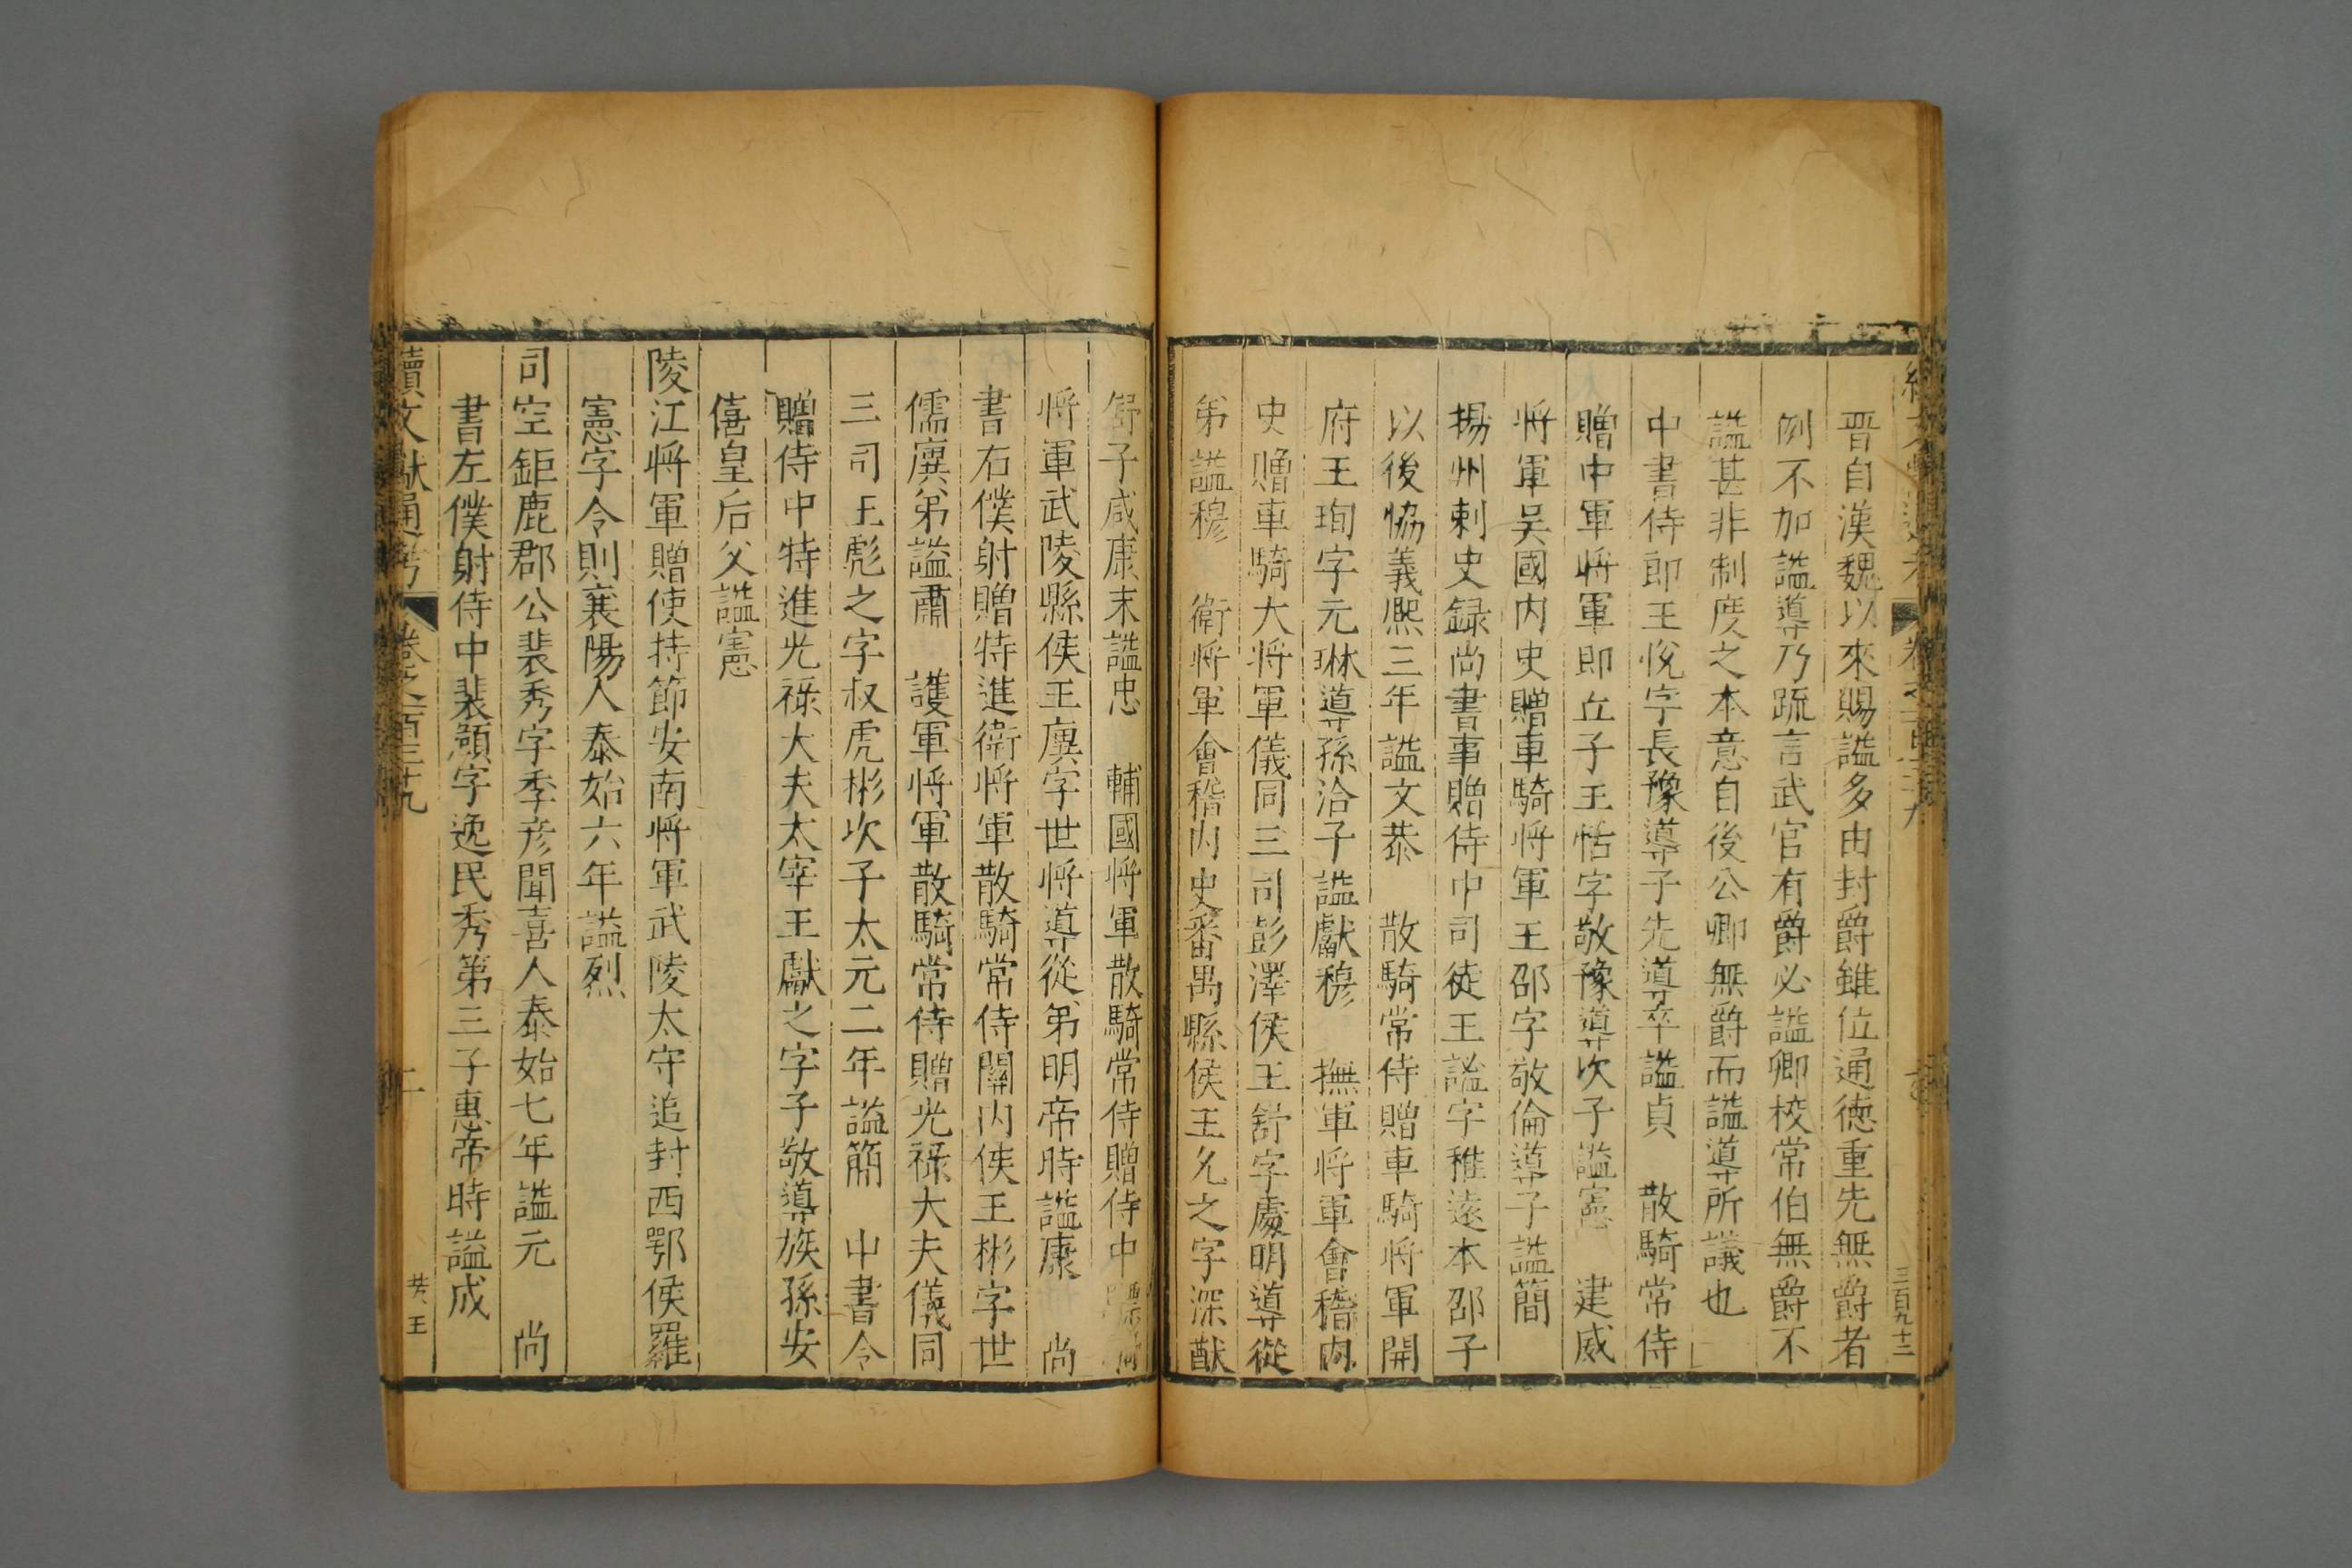 晋自漢魏以來賜諡多由封爵雖位通德重先無爵者
例不加諡導乃䟽言武官有爵必諡卿校常伯無爵不
諡甚非制度之本意自後公卿無爵而諡導所議也
中書侍郎王悅字長豫導子先導卒諡貞　散騎常侍
贈中軍将軍即丘子王恬字敬豫導次子諡憲　建威
将軍吴國内史贈車騎将軍王邵字敬倫導子諡簡
揚州刺史録尚書事贈侍中司徒王謐字稚遠本邵子
以後恊義熈三年諡文恭　散騎常侍贈車騎将軍開
府王珣字元琳導孫洽子諡獻穆　撫軍将軍會稽内
史贈車騎大将軍儀同三司彭澤侯王舒字處明導從
弟諡穆　衛将軍會稽内史番禺縣侯王允之字深猷
舒子咸康末諡忠　輔國将軍散騎常侍贈侍中
将軍武陵縣侯王廙字世将導從弟明帝時諡康　尚
書右僕射贈特進衛将軍散騎常侍關内侯王彬字世
儒廙弟諡肅　護軍将軍散騎常侍贈光祿大夫儀同
三司王彪之字叔虎彬次子太元二年諡簡　中書令
贈侍中特進光祿大夫太宰王獻之字子敬導族孫安
僖皇后父諡憲
陵江将軍贈使持節安南将軍武陵太守追封西鄂侯羅
憲字令則襄陽人泰始六年諡烈
司空鉅鹿郡公裴秀字季彦聞喜人泰始七年諡元　尚
書左僕射侍中裴頠字逸民秀第三子惠帝時諡成
續文獻通考　卷之一百三十九　二